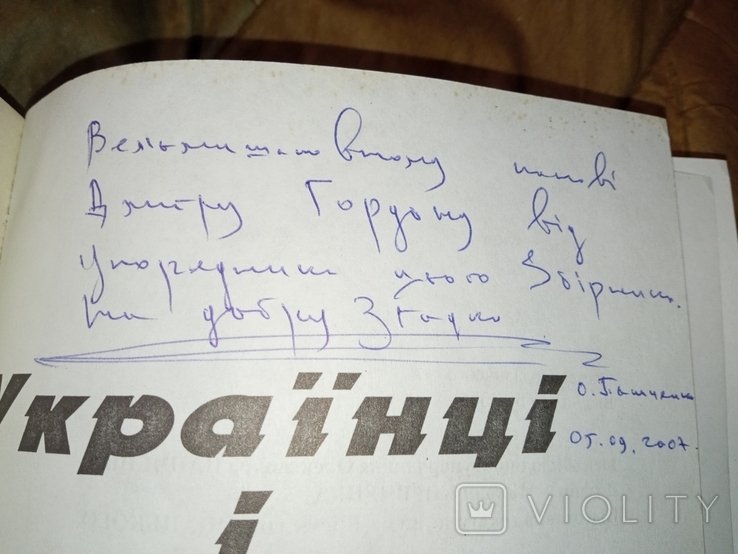 Вельмишановному панові
Дмитру Гордону від
упорядника цього Збірника.
на добру Згадку
Українці
О. Пащенко
05.09.2007.
і
VIOLITY